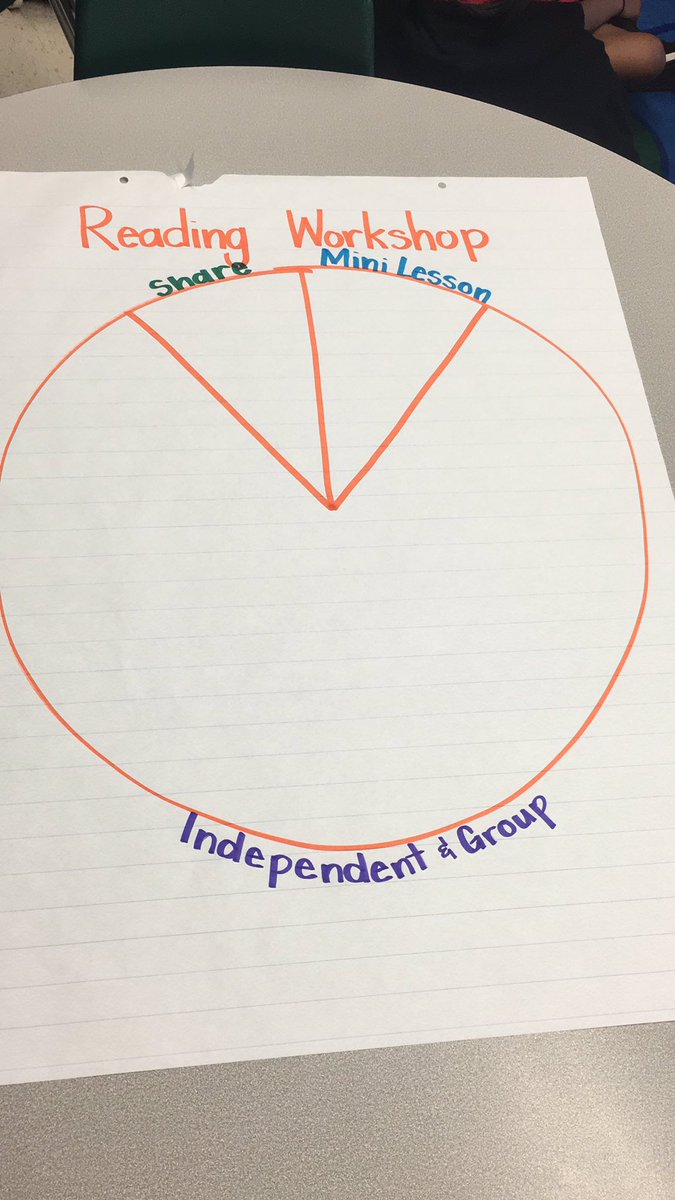 Reading Workshop
Share
Mini Lesson
Independent & Group